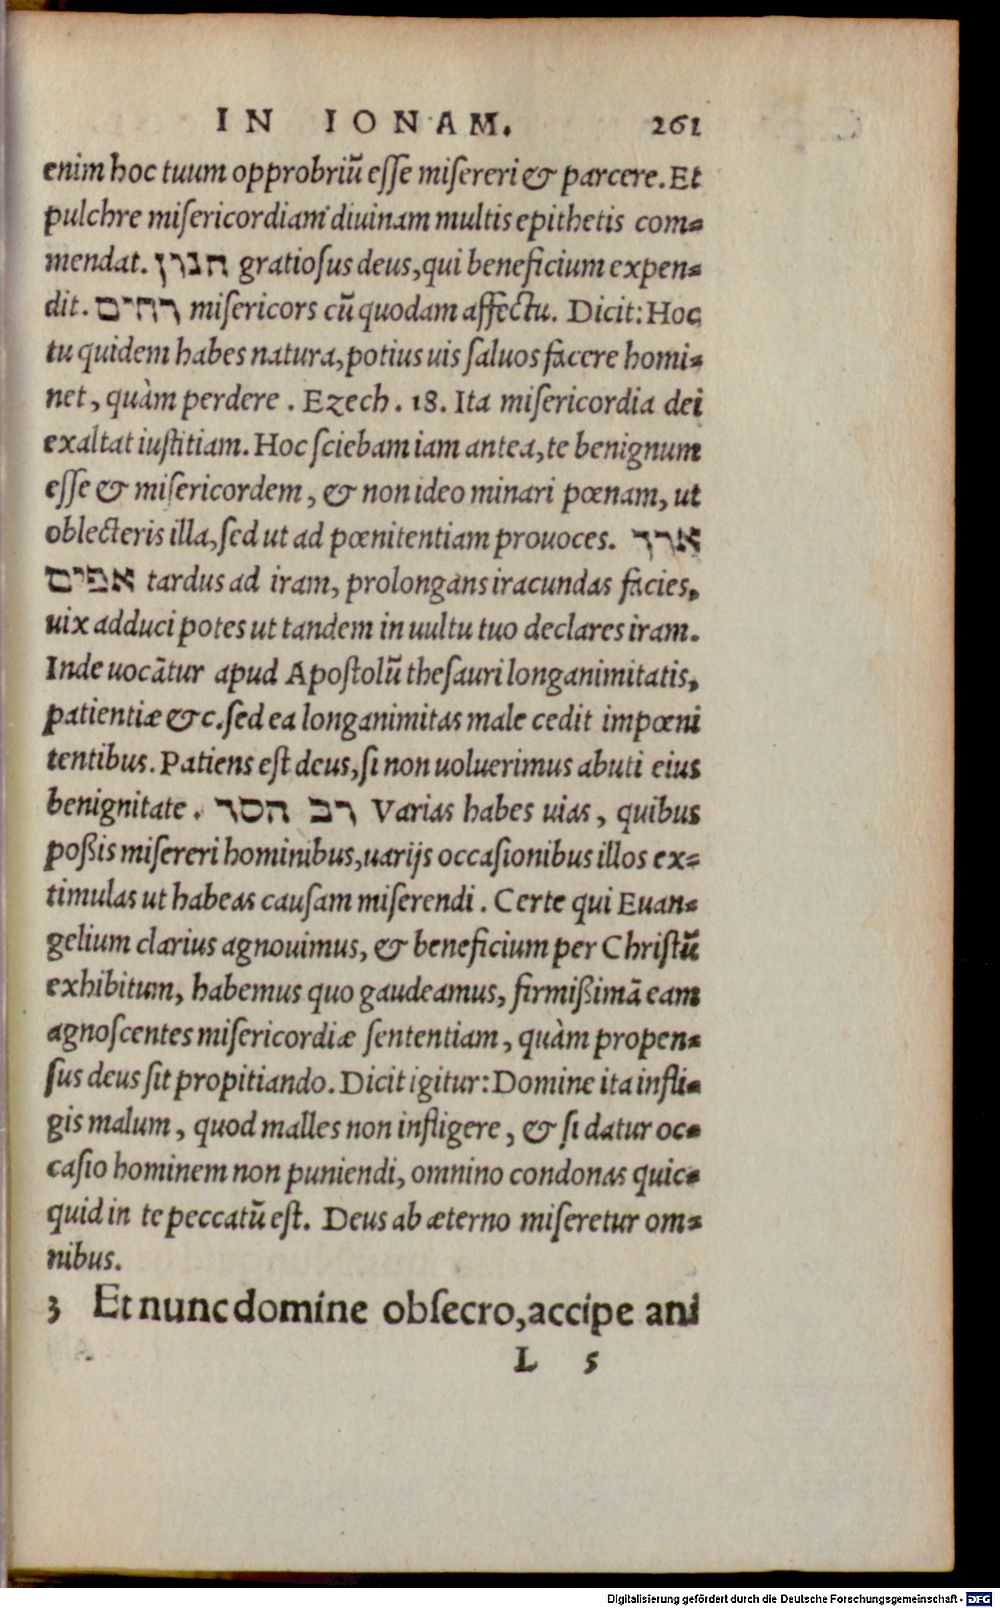 IN IONAM. 261
enim hoc tuum opprobriũ eſſe miſereri & parcere. Et
pulchre miſericordiam diuinam multis epithetis com⸗
mendat. חנון gratioſus deus, qui beneficium expen⸗
dit. רחים miſericors cũ quodam affectu. Dicit: Hoc
tu quidem habes natura, potius uis ſaluos facere homi⸗
net, quàm perdere. Ezech. 18. Ita miſericordia dei
exaltat iuſtitiam. Hoc ſciebam iam antea, te benignum
eſſe & miſericordem, & non ideo minari pœnam, ut
oblecteris illa, ſed ut ad pœnitentiam prouoces. ארך
אפים tardus ad iram, prolongans iracundas facies,
uix adduci potes ut tandem in uultu tuo declares iram.
Inde uocãtur apud Apoſtolũ theſauri longanimitatis,
patientiæ &c. ſed ea longanimitas male cedit impœni
tentibus. Patiens eſt deus, ſi non uoluerimus abuti eius
benignitate. רב הסר Varias habes uias, quibus
poßis miſereri hominibus, uarijs occaſionibus illos ex⸗
timulas ut habeas cauſam miſerendi. Certe qui Euan⸗
gelium clarius agnouimus, & beneficium per Chriſtũ
exhibitum, habemus quo gaudeamus, firmißimã eam
agnoſcentes miſericordiæ ſententiam, quàm propen⸗
ſus deus ſit propitiando. Dicit igitur: Domine ita infli⸗
gis malum, quod malles non infligere, & ſi datur oc⸗
caſio hominem non puniendi, omnino condonas quic⸗
quid in te peccatũ eſt. Deus ab æterno miſeretur om⸗
nibus.
3 Et nunc domine obſecro, accipe ani
L 5
Digitalisierung gefördert durch die Deutsche Forschungsgemeinschaft - DFG